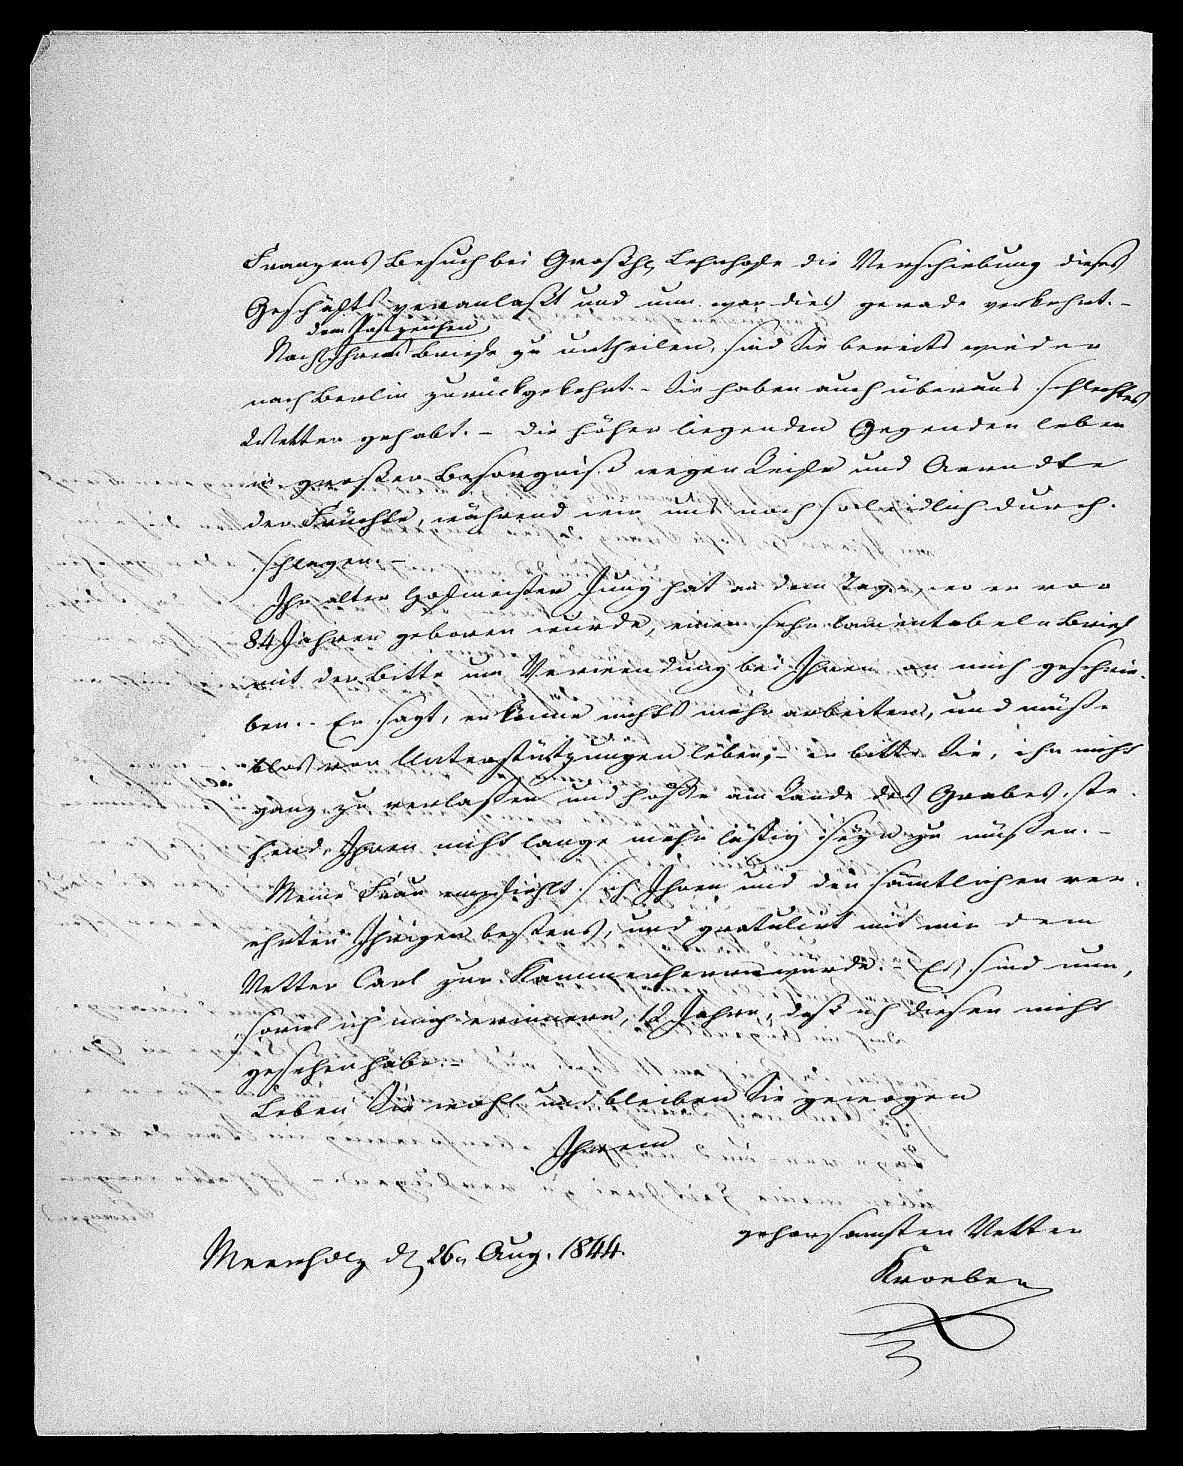 Franzens Besuch bei Großhz. Lehnhofe die Verschiebung dieses
Geschäfts veranlaßt und nun war dies gerade verkehrt. –
dem Postzeichen
Nach Ihres Briefe zu urtheilen, sind Sie bereits wieder
nach Berlin zurückgekehrt – Sie haben auch überaus schlechtes
Wetter gehabt. – Die höher liegenden Gegenden leben
in großer Besorgniß wegen Reife und Aerndte
der Früchte, während wir uns noch so leidlich durch-
schlagen. –
Ihr alter Hofmeister Jung hat an dem Tage, wo er vor
84 Jahren geboren wurde, einen sehr lamentabeln Brief
mit der Bitte um Verwendung bei Ihnen an mich geschrie-
ben. – Er sagt, er könne nichts mehr arbeiten, und müße
blos von Unterstützungen leben; – er bitte Sie, ihn nicht
ganz zu verlaßen und hoffe am Rande des Grabes ste-
hend, Ihnen nicht lange mehr lästig seyn zu müßen. –
Meine Frau empfiehlt sich Ihnen und den sämtlichen ver-
ehrten Ihrigen bestens, und gratulirt mit mir dem
Vetter Carl zur Kammerherrnwürde. – Es sind nun,
soviel ich mich erinnere, 12 Jahre, daß ich diesen nicht
gesehen habe. –
Leben Sie wohl und bleiben Sie gewogen
Ihrem
gehorsamsten Vetter
Meerholz d. 26n Aug. 1844.
Kroeber